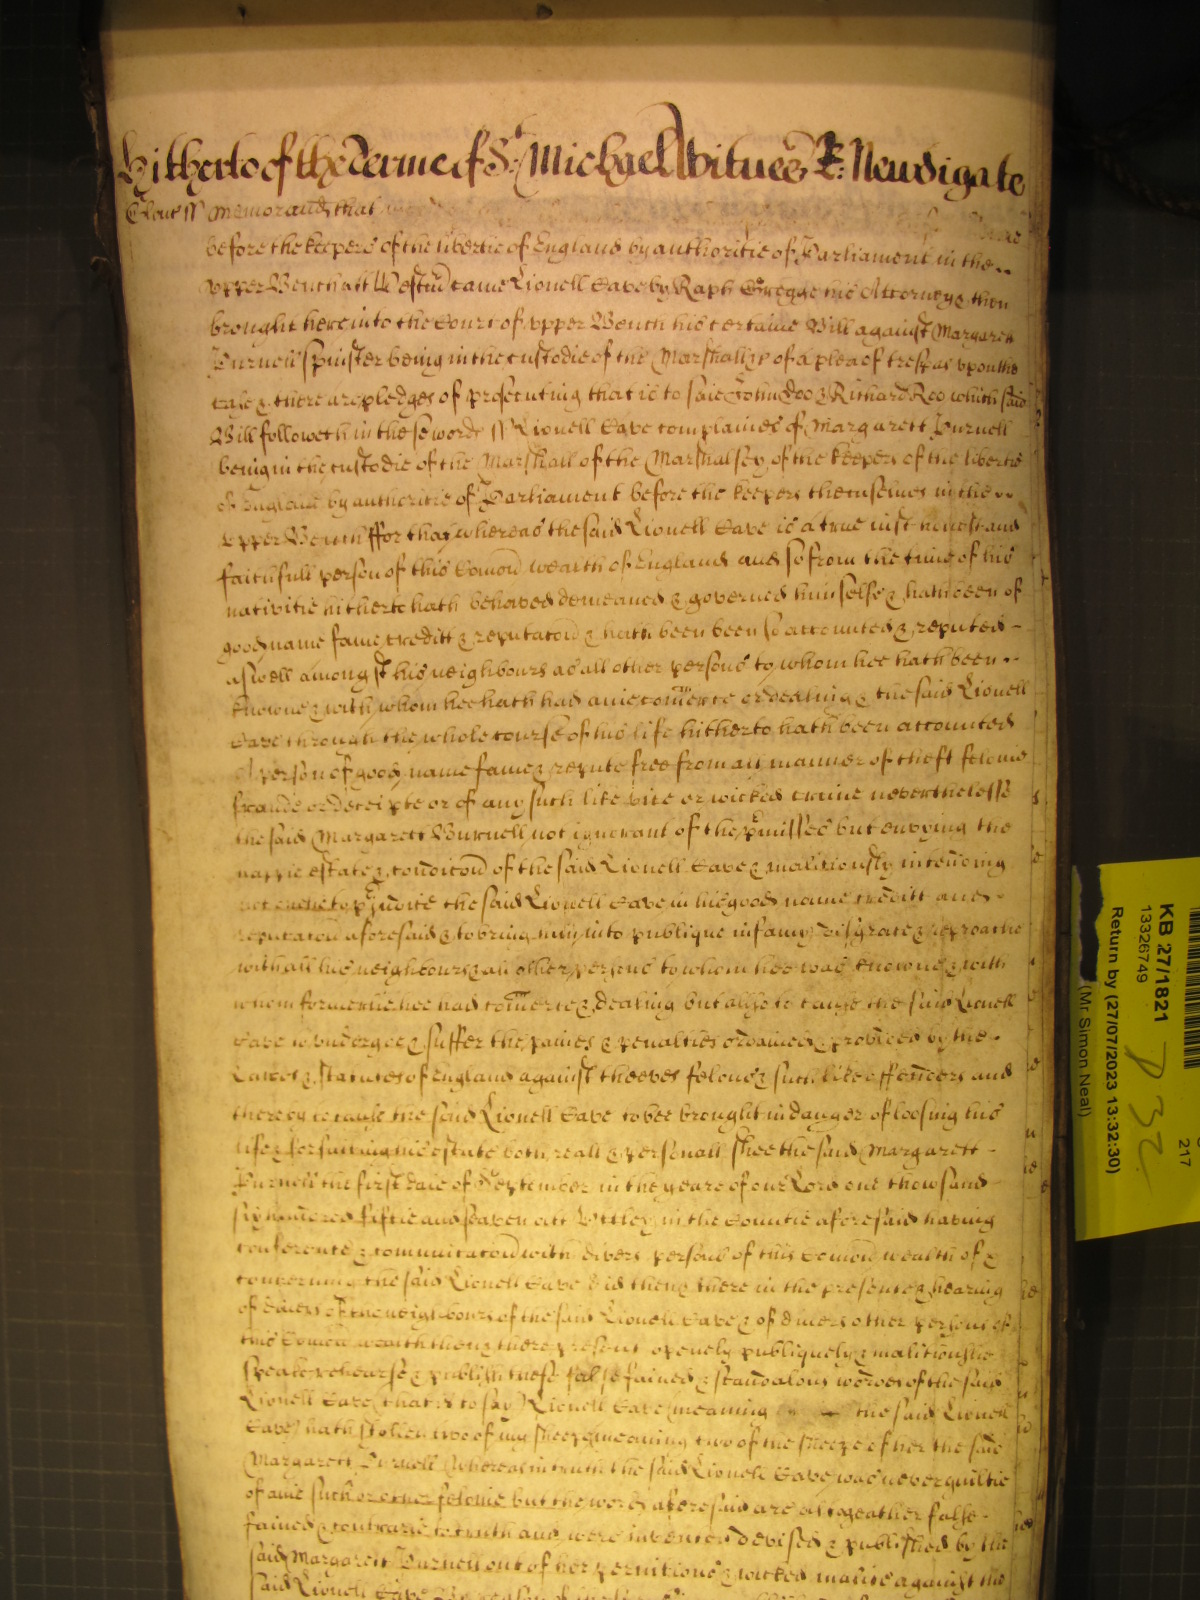 Hitherto of the Terme of St. Michael Witnes R: Newdigate
Glouc ss Memorand that
before the keepers of the libertie of England by authoritie of Parliament in the
upper Bench att Westm came Lionell Cave by Raph Gregge his Attorney & then
brought here into the Court of upper Bench his certaine Bill against Margarett
Purnell Spinster being in the custodie of the Marshall &c of a plea of trespas upon the
case & there are pledges of prosecuting that is to saie John Doo & Richard Roo which said
Bill followeth in these words ss Lionell Cave complaines of Margarett Purnell
being in the custodie of the Marshall of the Marshalsey of the keepers of the libertie
of England by authoritie of Parliament before the keepers themselves in the
upper Bench ffor that whereas the said Lionell Cave is a true iust honest and
faithfull person of this Comon wealth of England and so from the time of his
nativitie hitherto hath behaved demeaned & governed himselfe & hath been of
good name fame creditt & reputacon & hath been been so accounted & reputed
aswell amongst his neighbours as all other persons to whom hee hath been
knowne & with whom hee hath had anie comerce or dealing & the said Lionell
Cave through the whole course of his life hitherto hath been accounted
A person of good name fame & repute free from all manner of theft felonie
fraude or deceipte or of any such like vice or wicked crime neverthelesse
the said Margarett Purnell not ignorant of the pmisses but envying the
happie estate & condicon of the said Lionell Cave & malitiously intending
not onelie to pjudice the said Lionell Cave in his good name creditt and
reputacon aforesaid & to bring him into publique infamy disgrace & reproache
with all his neighbours & all other persons to whom hee was knowne & with
whom formerlie hee had comerce & dealing but alsoe to cause the said Lionell
Cave to undergoe & suffer the paines & penalties ordained & provided by the
Lawes & statutes of England against theeves felons & such like offenders and
thereby to cause the said Lionell Cave to bee brought in danger of loosing his
life & forfaiting his estate both reall & personall shee the said Margarett
Purnell the first daie of September in the yeare of our Lord one thowsand
six hundred fiftie and seaven att Uttley in the Countie aforesaid having
conference & communicacon with divers persons of this Comon wealth of &
concerning the said Lionell Cave did then & there in the presence & hearing
of divers of the neighbours of the said Lionell Cave & of divers other persons of
this Comon wealth then & there present openly publiquely & malitiouslie
speake rehearse & publish these false fained & scandalous wordes of the said
Lionell Cave (that is to say) Lionell Cave (meaning the said Lionell
Cave) hath stollen two of my sheepe (meaning two of the sheepe of her the said
Margarett Purnell) whereas in truth the said Lionell Cave was never guiltie
of anie such or other felonie but the words aforesaid are altogeather false
fained & contrarie to truth and were invented devised & published by the
said Margarett Purnell out of her pernitious & wicked malice against the
said Lionell Cave By reason of
KB 27/1821
13326749
Return by (27/07/2023 13:32:30)
(Mr Simon Neal)
217